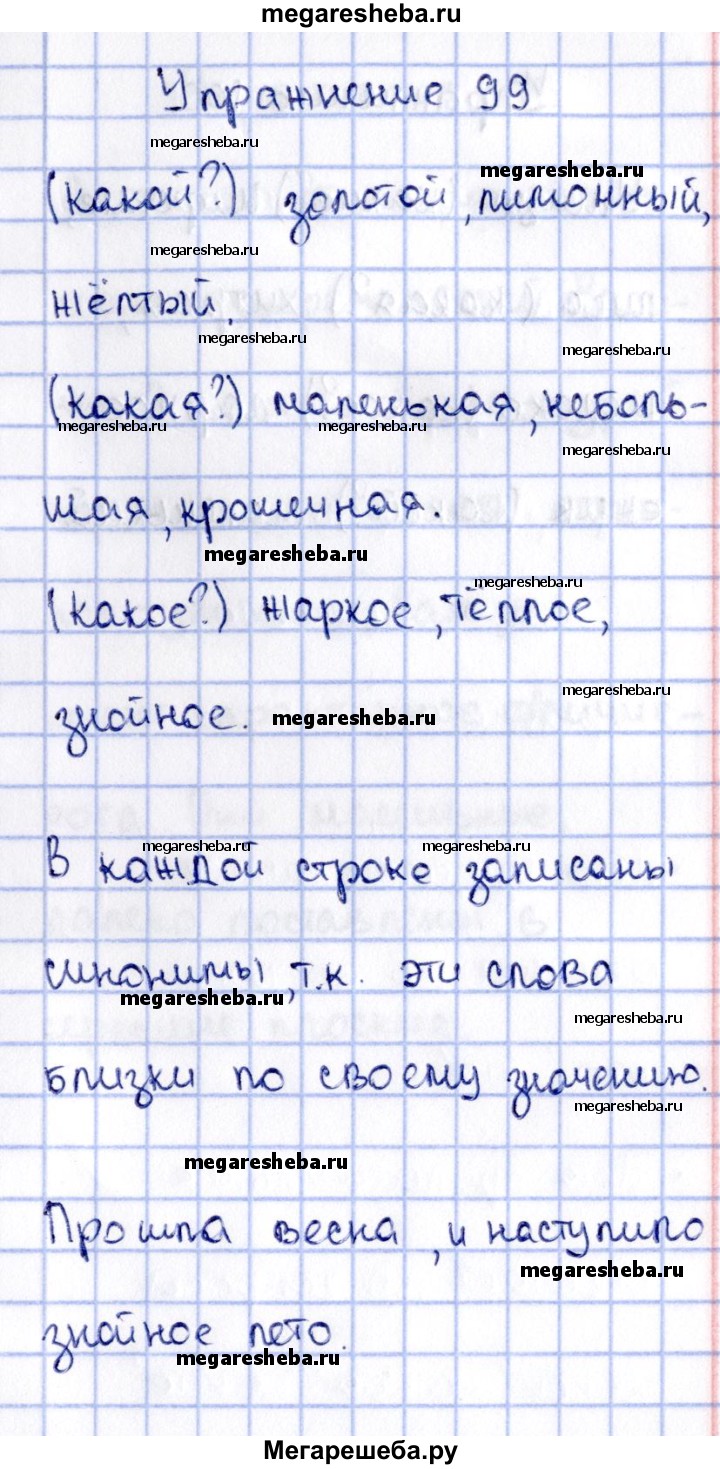 megaresheba.ru
Упражнение 99
megaresheba.ru
megaresheba.ru
(какой?) золотой, лимонный,
megaresheba.ru
жёлтый.
megaresheba.ru
megaresheba.ru
(какая?) маленькая, неболь-
megaresheba.ru megaresheba.ru megaresheba.ru
шая, крошечная.
megaresheba.ru
megaresheba.ru
(какое?) жаркое, тёплое,
megaresheba.ru
знойное. megaresheba.ru
megaresheba.ru megaresheba.ru
В каждой строке записаны
синонимы, т.к. эти слова
megaresheba.ru
megaresheba.ru
близки по своему значению.
megaresheba.ru
megaresheba.ru
Прошла весна, и наступило
megaresheba.ru
знойное лето.
megaresheba.ru
Мегарешеба.ру